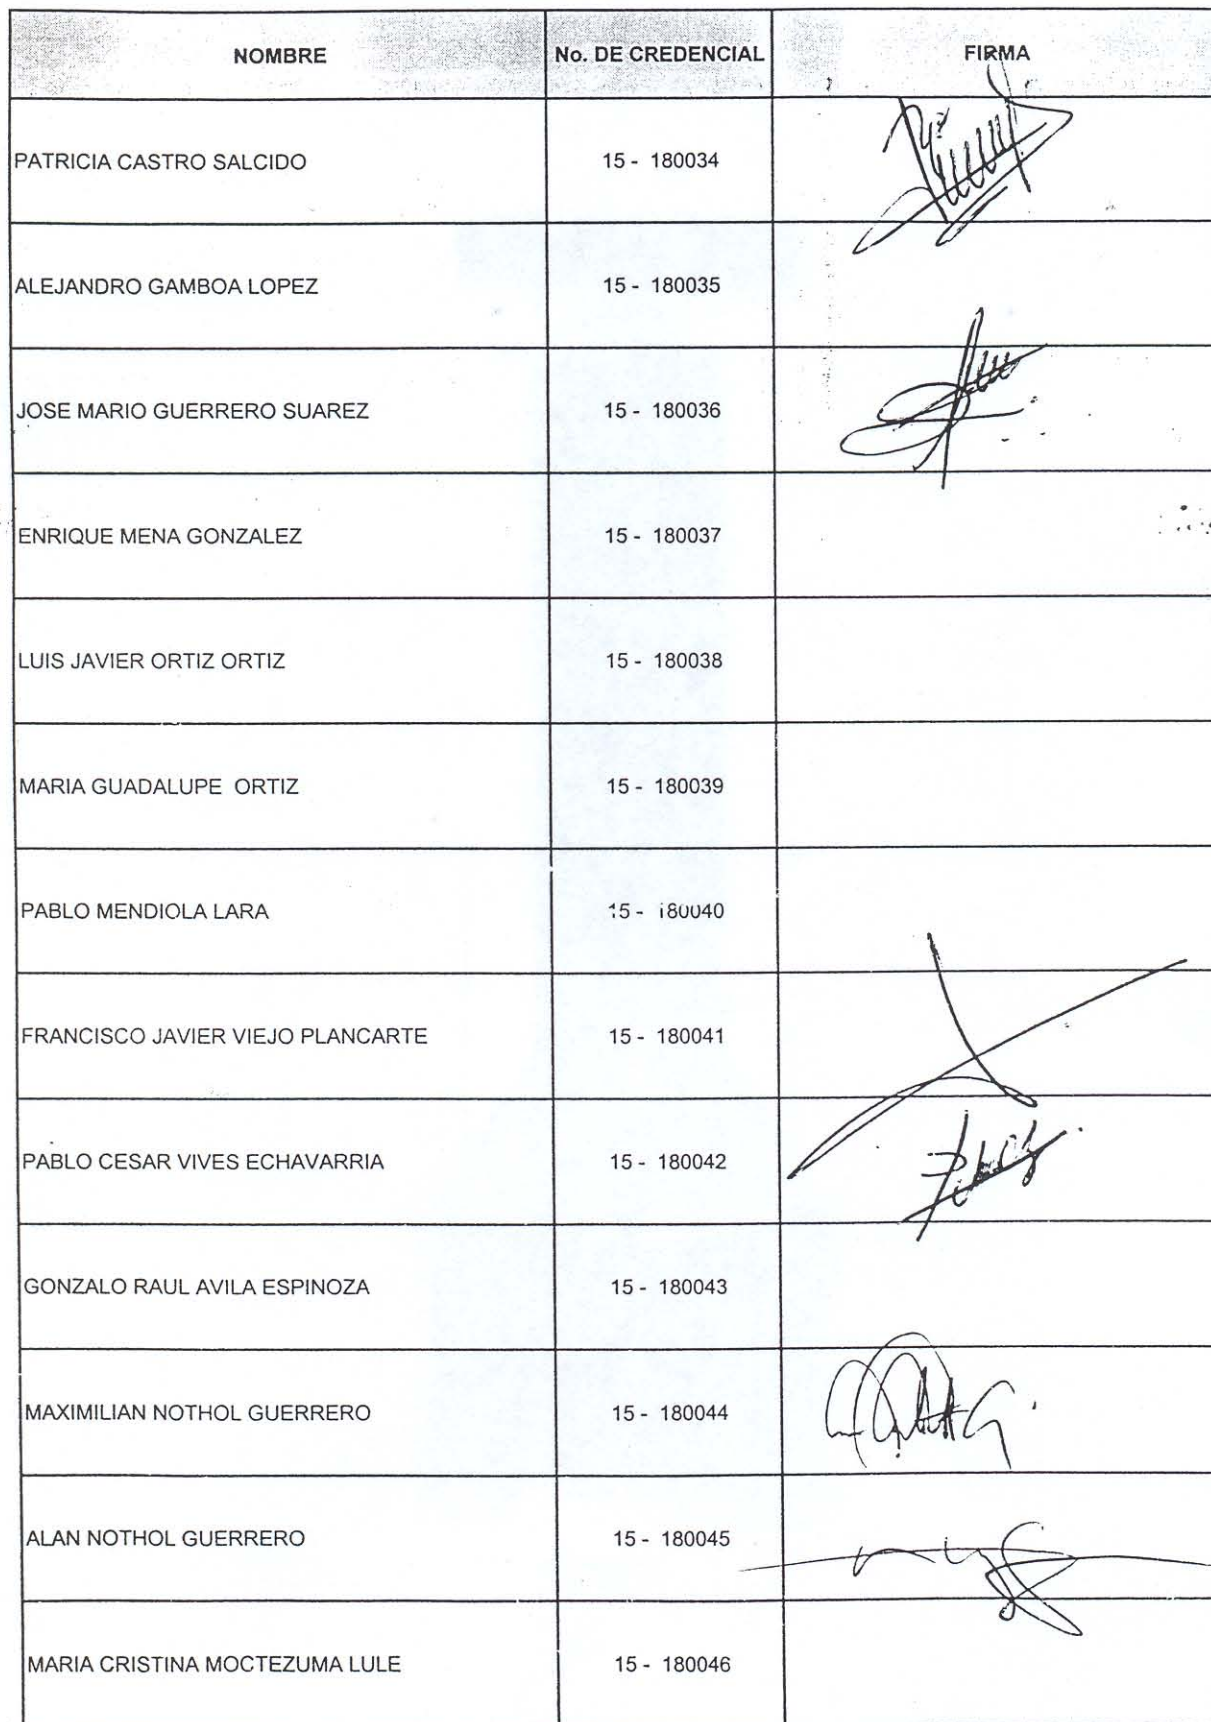 NOMBRE No. DE CREDENCIAL FIRMA
PATRICIA CASTRO SALCIDO 15 - 180034
ALEJANDRO GAMBOA LOPEZ 15 - 180035
JOSE MARIO GUERRERO SUAREZ 15 - 180036
ENRIQUE MENA GONZALEZ 15 - 180037
LUIS JAVIER ORTIZ ORTIZ 15 - 180038
MARIA GUADALUPE ORTIZ 15 - 180039
PABLO MENDIOLA LARA 15 - 180040
FRANCISCO JAVIER VIEJO PLANCARTE 15 - 180041
PABLO CESAR VIVES ECHAVARRIA 15 - 180042
GONZALO RAUL AVILA ESPINOZA 15 - 180043
MAXIMILIAN NOTHOL GUERRERO 15 - 180044
ALAN NOTHOL GUERRERO 15 - 180045
MARIA CRISTINA MOCTEZUMA LULE 15 - 180046